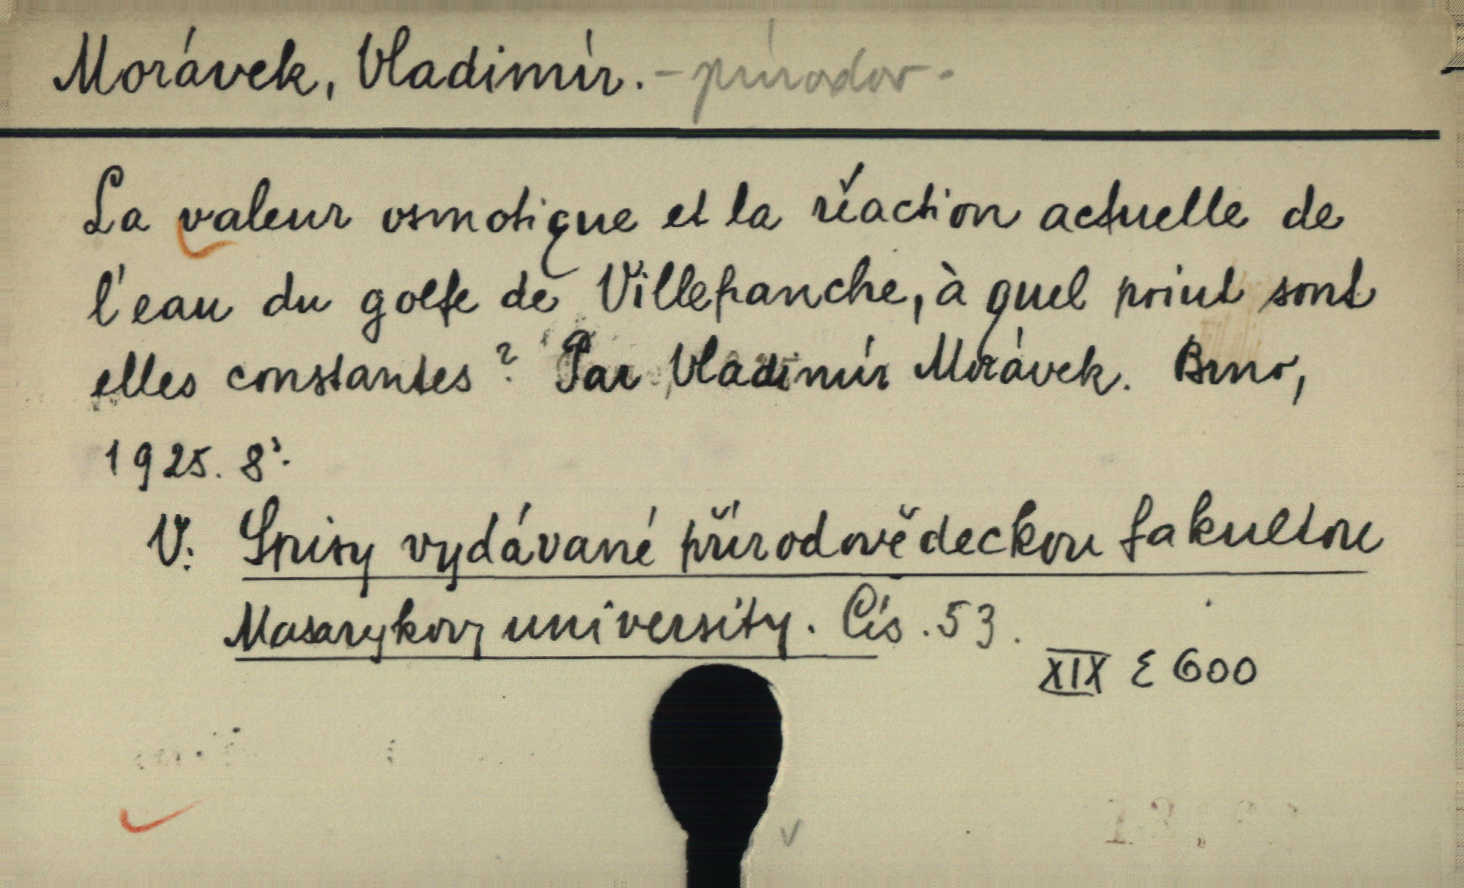 Morávek, Vladimír. - přírodov -
La valeur osmotique et la réaction actuelle de
l'eau du golfe de Villefranche, à quel point sont
elles constantes? Par Vladimír Morávek. Brno,
1925. 8°.
V: Spisy vydávané přírodovědeckou fakultou
Masarykovy university. Čís. 53.
XIX E 600